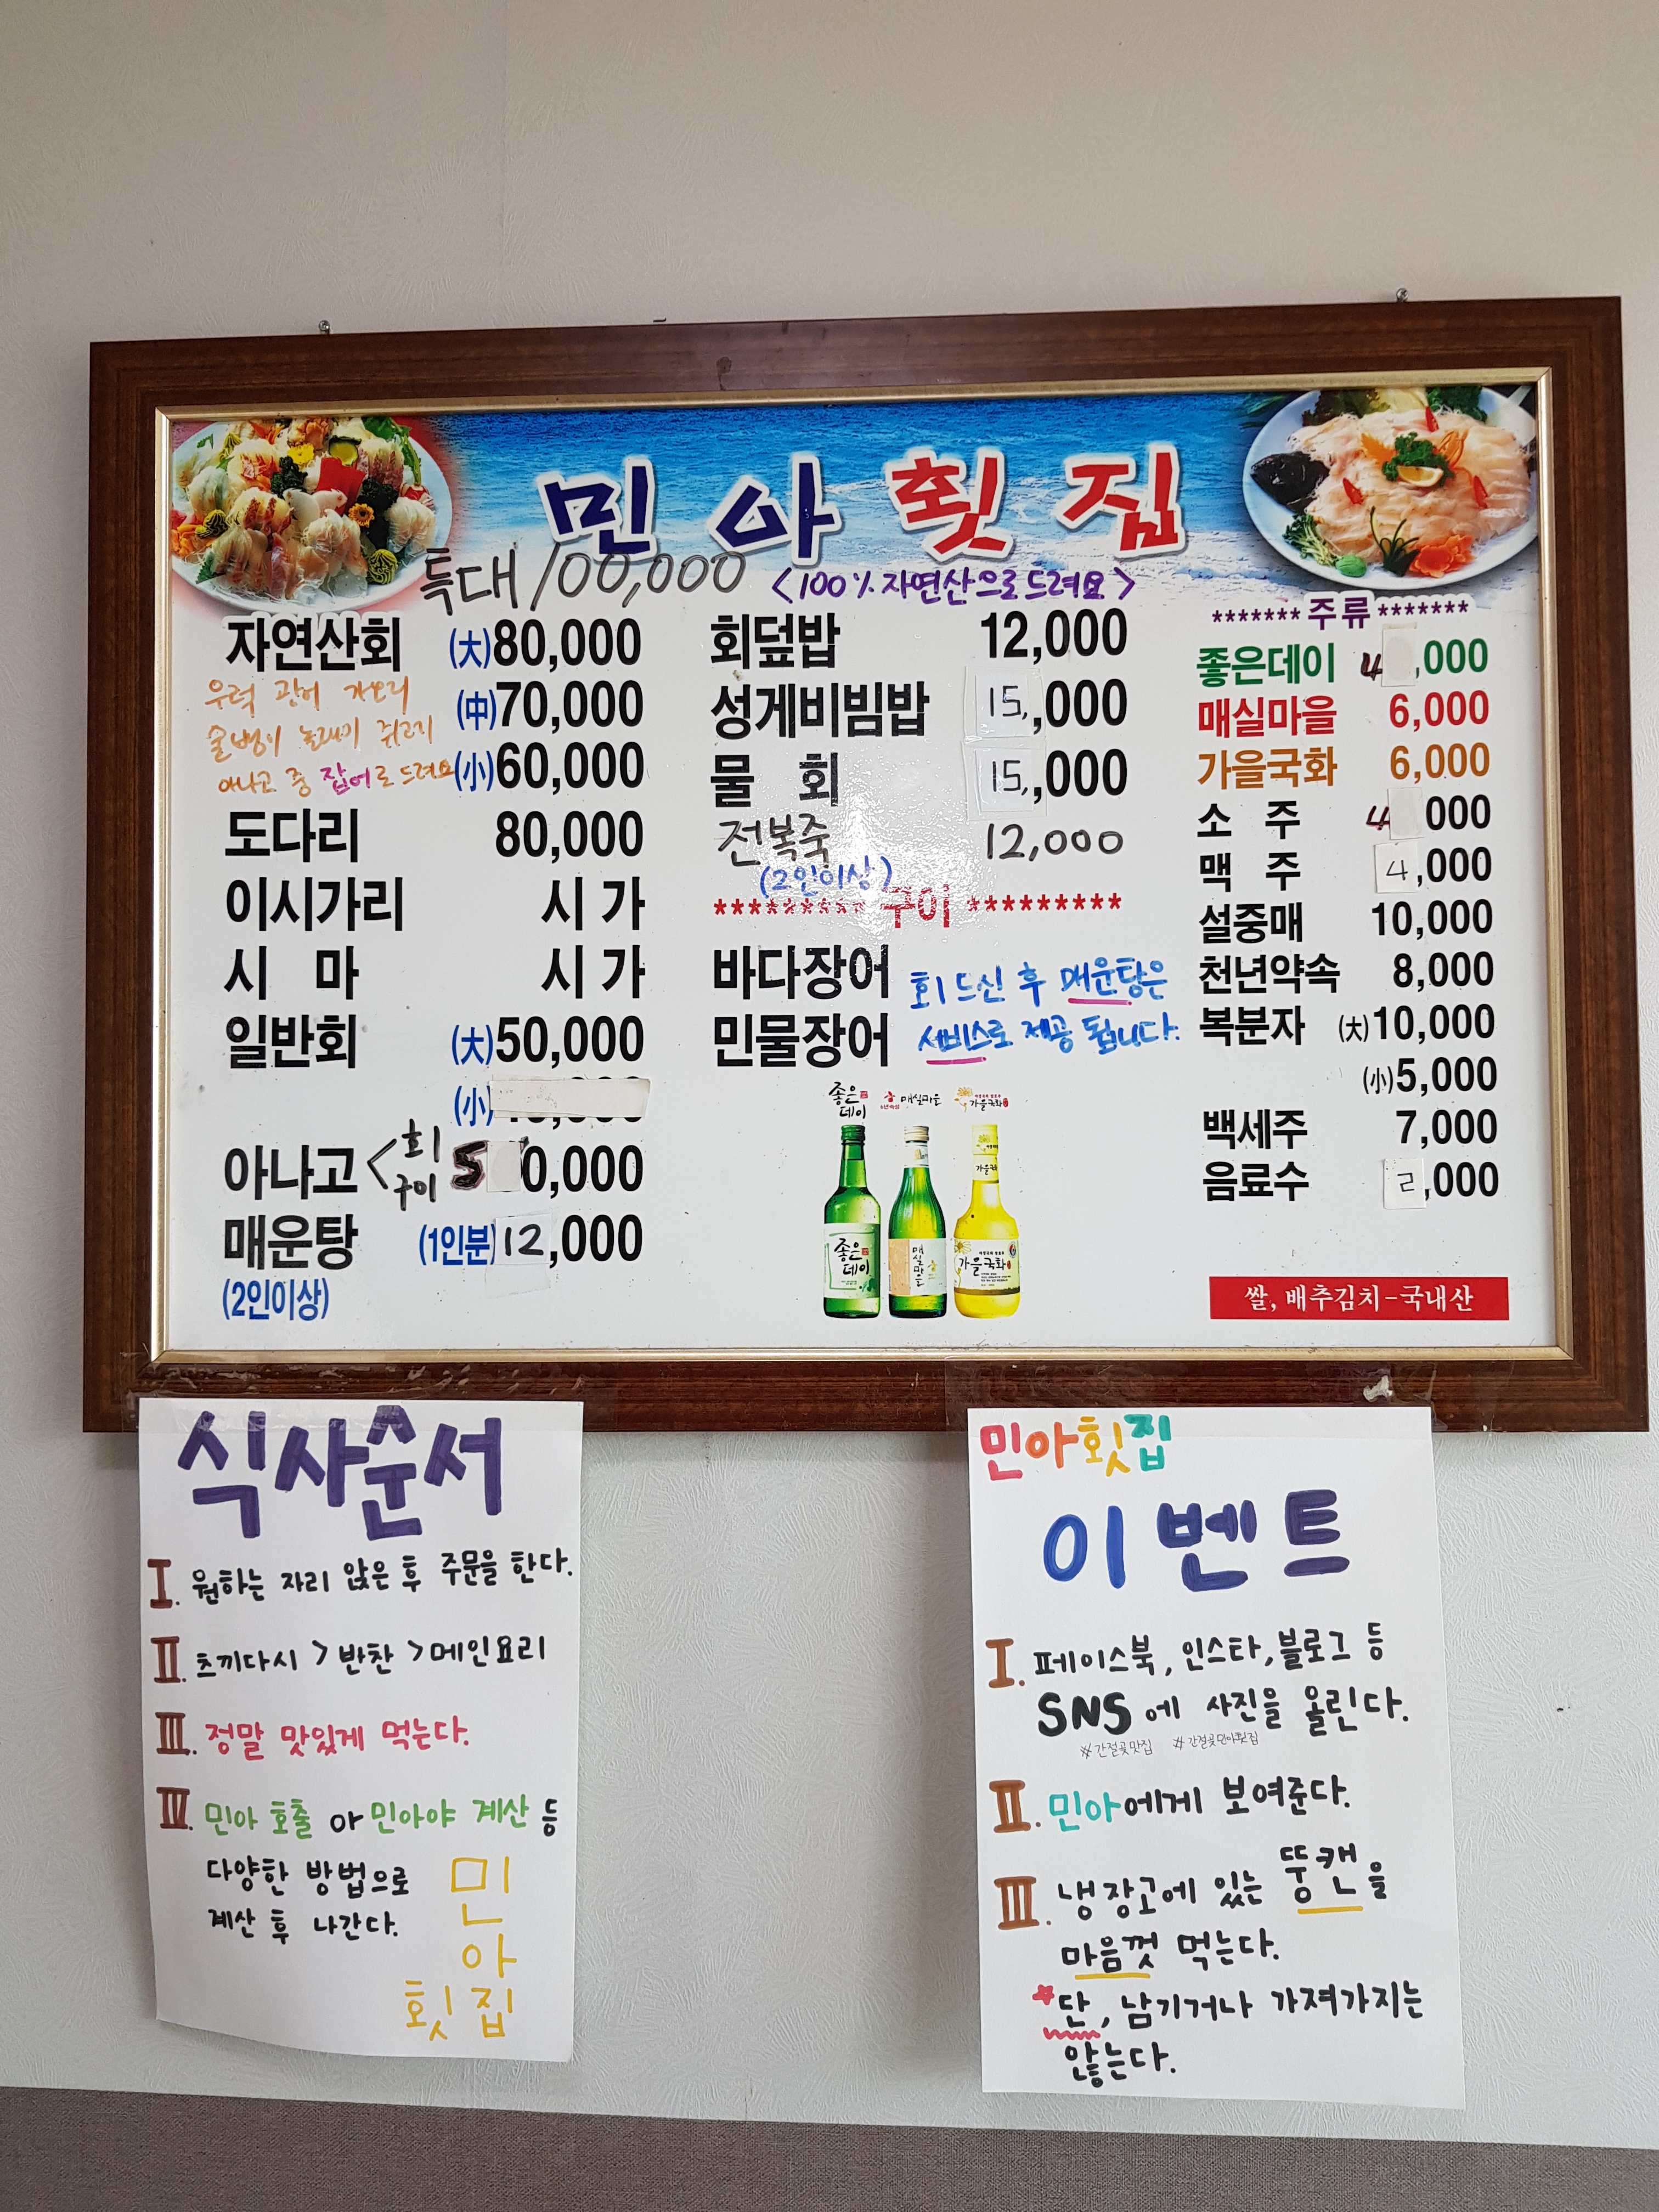 민아횟집
특대 100,000 <100% 자연산으로드려요>
자연산회 (大)80,000
우럭 광어 가오리 (中)70,000
술뱅이 놀래미 쥐고기
아나고 중 잡어로 드려요 (小)60,000
도다리 80,000
이시가리 시가
시 마 시가
일반회 (大)50,000
(小)
아나고 < 회 구이 50,000
매운탕 (1인분)12,000
(2인이상)
회덮밥 12,000
성게비빔밥 15,,000
물 회 15,,000
전복죽 12,000
(2인이상)
********* 구이 *********
바다장어
민물장어
회 드신 후 매운탕은
서비스로 제공 됩니다.
좋은데이 매실마을 가을국화
좋은데이 매실마을 가을국화
*******주류*******
좋은데이 4,000
매실마을 6,000
가을국화 6,000
소 주 4 000
맥 주 4,000
설중매 10,000
천년약속 8,000
복분자 (大)10,000
(小)5,000
백세주 7,000
음료수 2,000
쌀, 배추김치-국내산
식사순서
I. 원하는 자리 앉은 후 주문을 한다.
II. 츠끼다시 > 반찬 > 메인요리
III. 정말 맛있게 먹는다.
IV. 민아 호출 or 민아야 계산 등
다양한 방법으로
계산 후 나간다.
민아횟집
민아횟집
이벤트
I. 페이스북, 인스타, 블로그 등
SNS에 사진을 올린다.
#간절곶맛집 #간절곶민아횟집
II. 민아에게 보여준다.
III. 냉장고에 있는 뚱캔을
마음껏 먹는다.
*단, 남기거나 가져가지는
않는다.